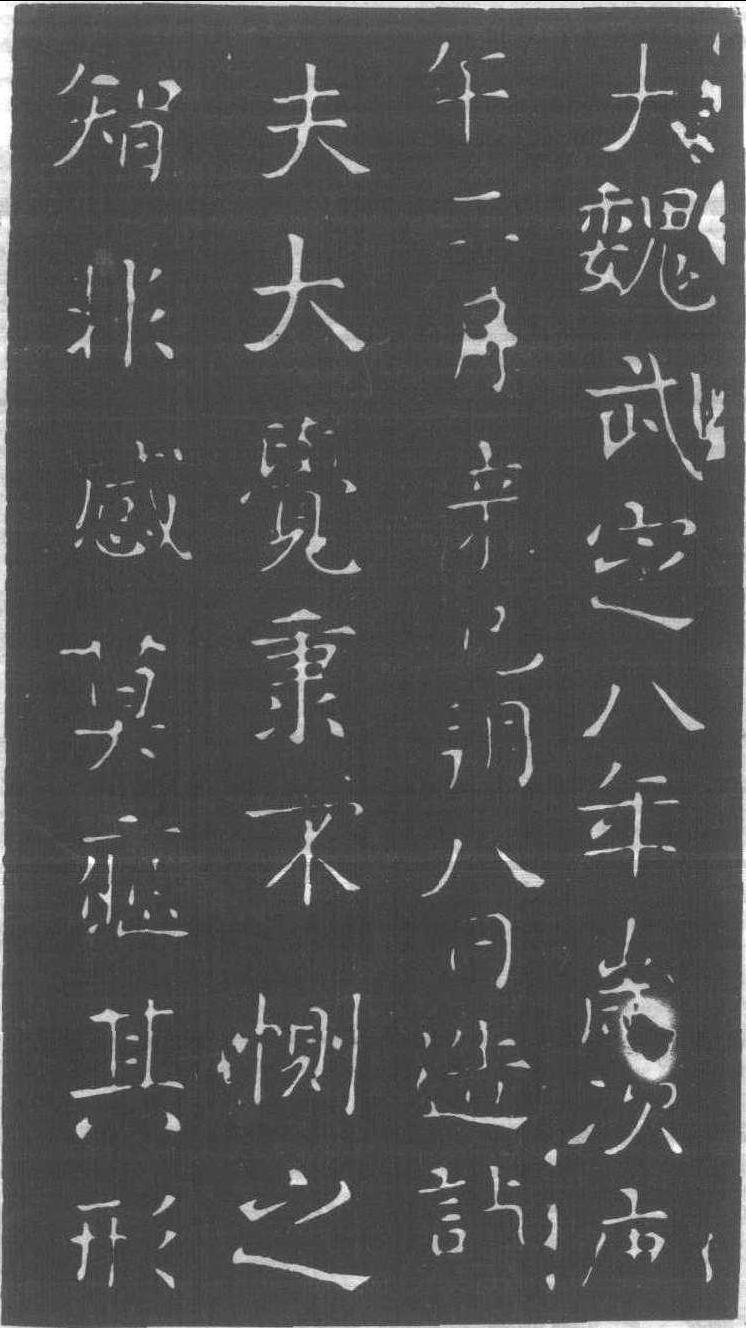 大魏武定八年歲次庚
午二月辛巳朔八日造訖
夫大覺秉不惻之
智非感莫應其形